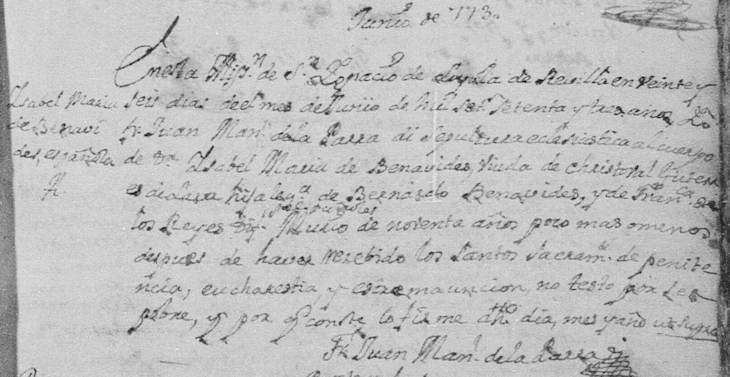 Junio de 1773.
En esta Miss.n de S.n Ygnacio de Loyola de Revilla en veinte y
Isabel Maria
de Benavi
des, española
seis dias del mes de Junio de mil Set.s setenta y tres años, Yo
Fr. Juan Man.l de la Parra di sepultura eclesiastica al cuerpo
de D.a Ysabel Maria de Benavides, Viuda de Christoval
hija leg.a de Bernardo Benavides, y de Fran.ca de
los Reyes españoles Murio de noventa años poco mas o menos
despues de haver recebido los Santos Sacram.s de penite
ncia, eucharestia y estremauncion, no testo por ser
pobre, y por q conste lo firme dho dia, mes y año ut supra
Fr. Juan Man.l de la Parra